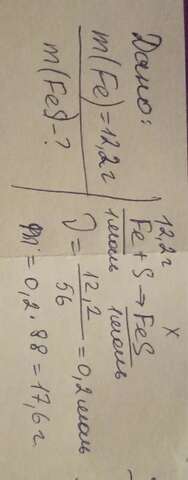 Дано:
m(Fe)=12,2г
m(FeS)-?
12,2г x
Fe + S → FeS
1моль 1моль
ν = 12,2 / 56 = 0,2 моль
m = 0,2 · 88 = 17,6 г.